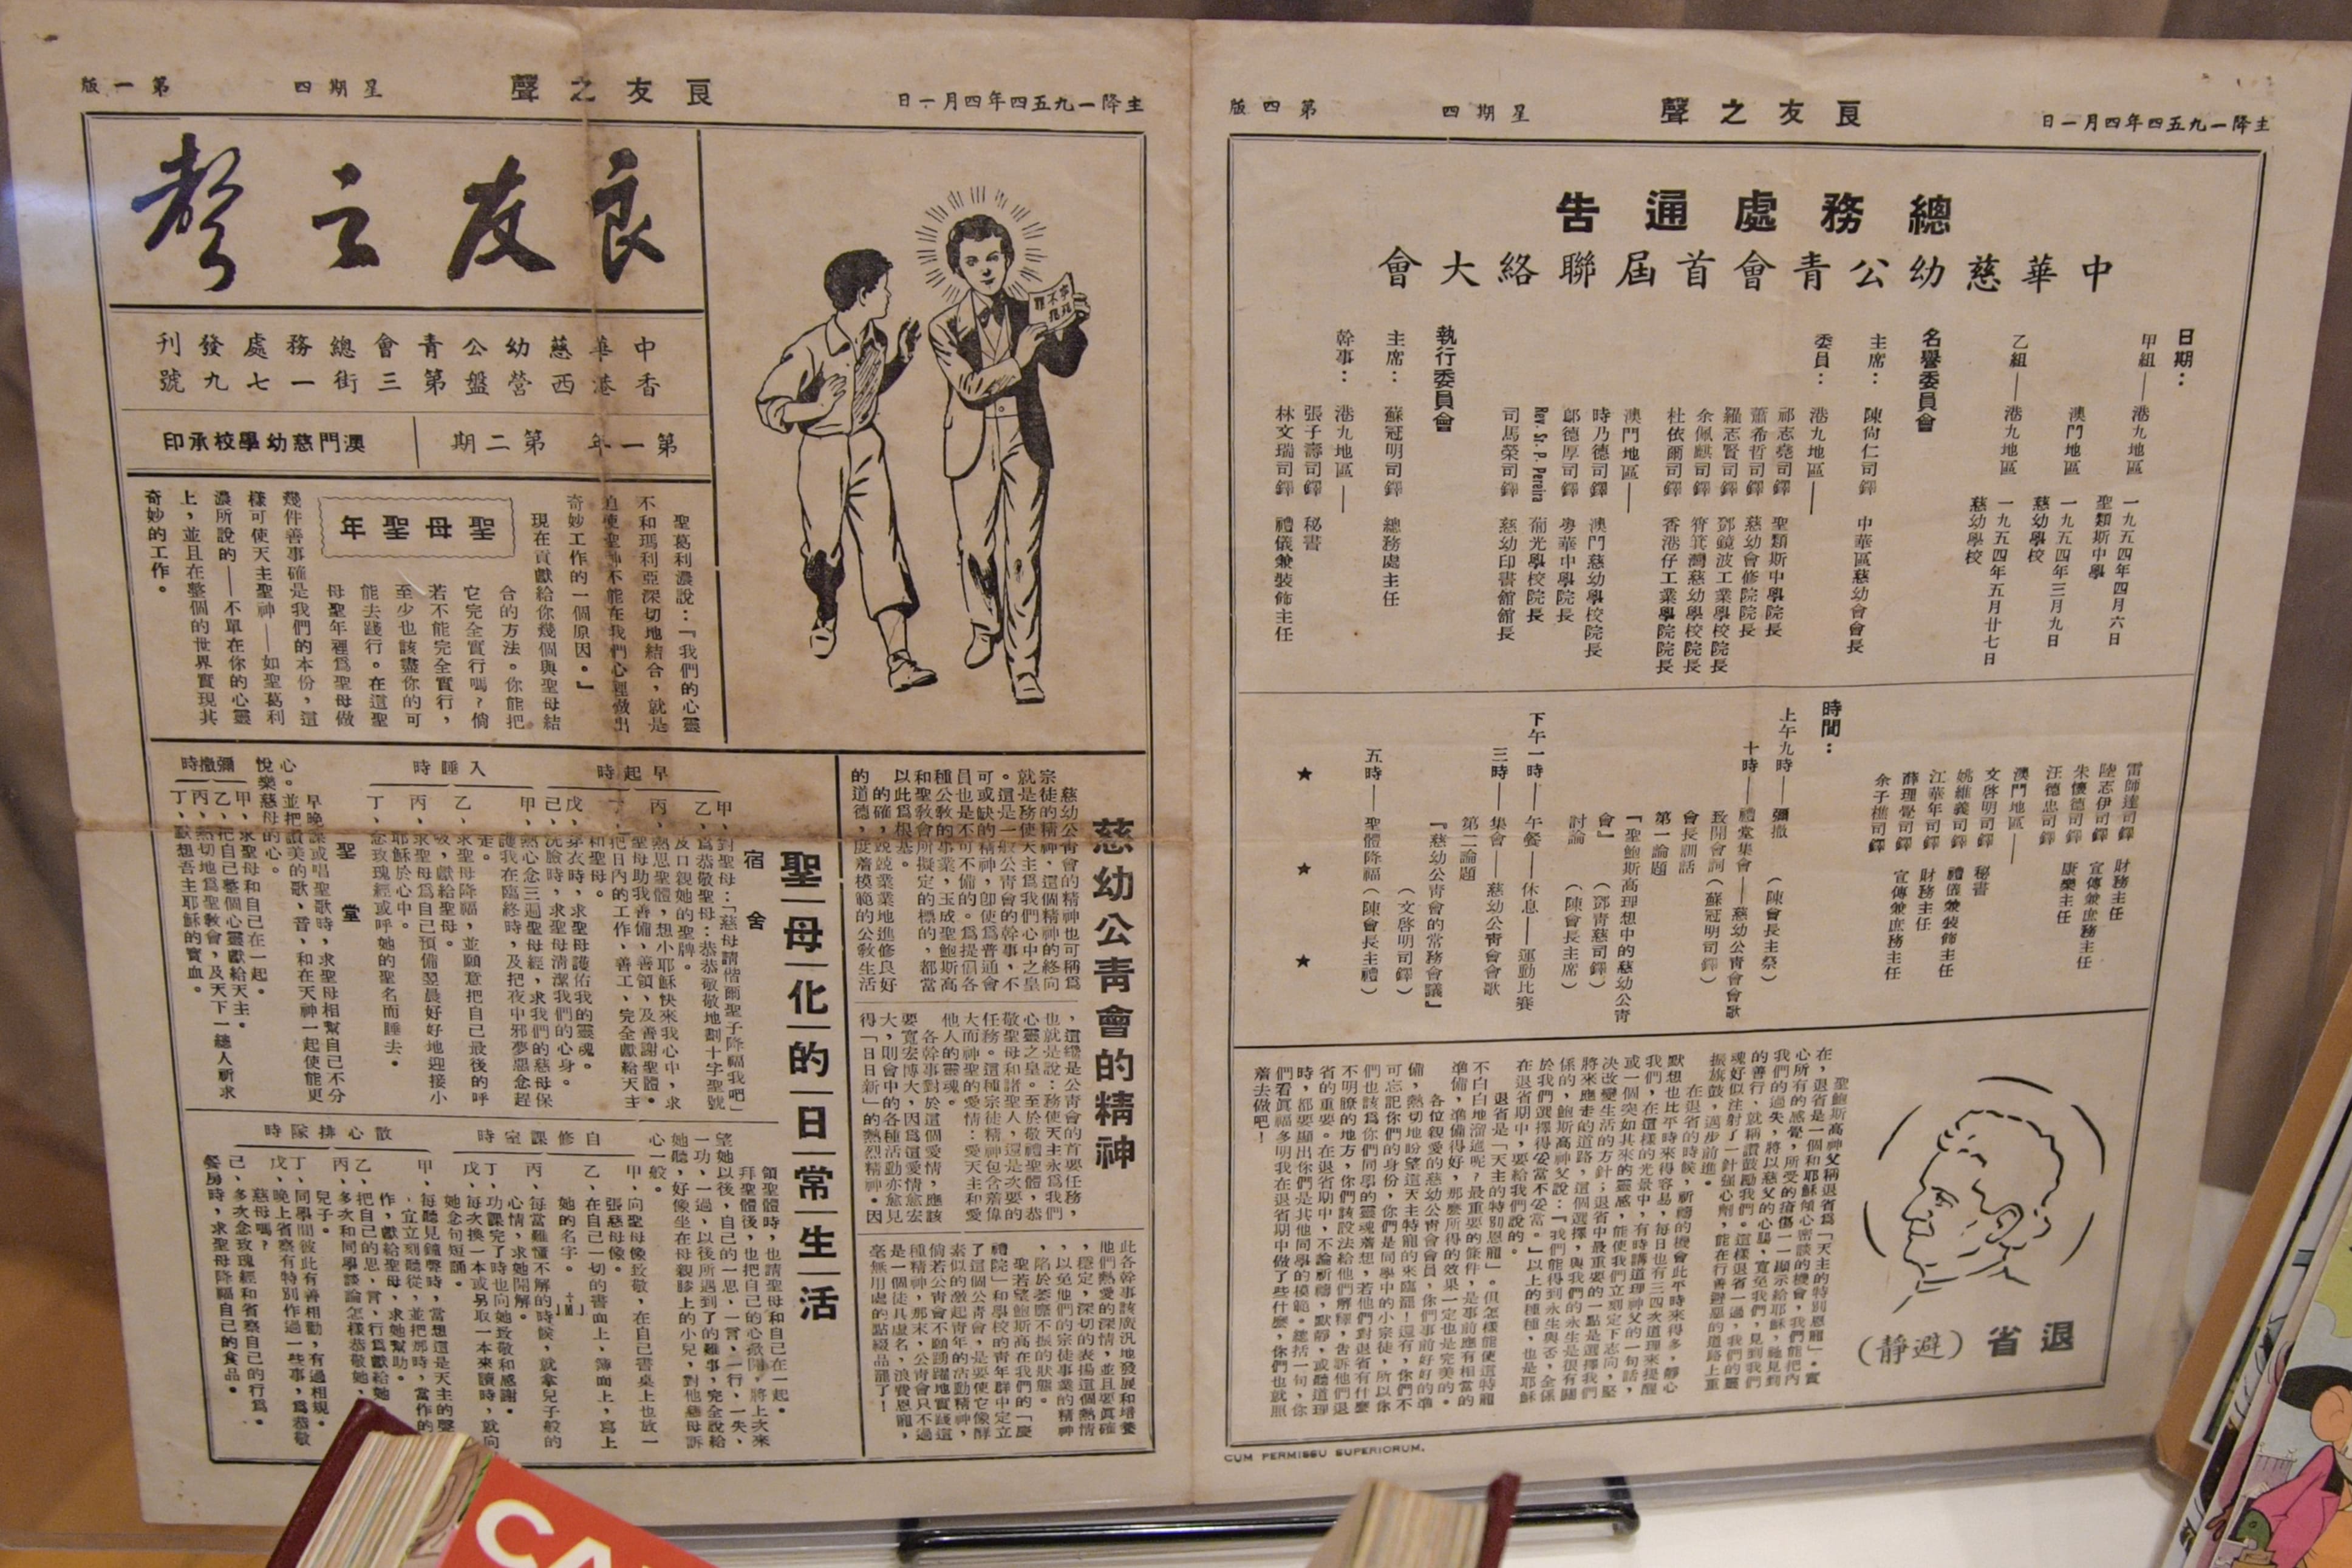 主降一九五四年四月一日
良友之聲
星期四
第四版
總務處通告
中華慈幼公青會首屆聯絡大會
日期：
甲組——港九地區
一九五四年四月六日
聖類斯中學
澳門地區
一九五四年三月九日
慈幼學校
乙組——港九地區
一九五四年五月廿七日
慈幼學校
名譽委員會
主席：
陳尚仁司鐸 中華區慈幼會會長
委員：
港九地區——
祁志堯司鐸 聖類斯中學院長
蕭希哲司鐸 慈幼會修院院長
羅志賢司鐸 鄧鏡波工業學校院長
余佩麒司鐸 筲箕灣慈幼學校院長
杜依爾司鐸 香港仔工業學院院長
澳門地區——
時乃德司鐸 澳門慈幼學校院長
鄔德厚司鐸 粵華中學院長
Rev. Sr. P. Pereira 葡光學校院長
司馬榮司鐸 慈幼印書館館長
執行委員會
主席：
蘇冠明司鐸 總務處主任
幹事：
港九地區——
張子壽司鐸 秘書
林文瑞司鐸 禮儀兼裝飾主任
雷師達司鐸 財務主任
陸志伊司鐸 宣傳兼庶務主任
朱懷德司鐸
汪德忠司鐸 康樂主任
澳門地區——
文啓明司鐸 秘書
姚維義司鐸 禮儀兼裝飾主任
江華年司鐸 財務主任
薛理覺司鐸 宣傳兼庶務主任
余子樵司鐸
時間：
上午九時——彌撒 （陳會長主祭）
十時——禮堂集會——慈幼公青會會歌
致開會詞（蘇冠明司鐸）
會長訓話
第一論題
『聖鮑斯高理想中的慈幼公青
會』 （鄧青慈司鐸）
討論 （陳會長主席）
下午一時——午餐——休息——運動比賽
三時——集會——慈幼公青會會歌
第二論題
『慈幼公青會的常務會議』
（文啓明司鐸）
五時——聖體降福（陳會長主禮）
★ ★ ★
退省（避靜）
聖鮑斯高神父稱退省為「天主的特別恩寵」。實
在，退省是一個和耶穌傾心密談的機會，我們能把內
心所有的感覺，所受的瘡傷一一顯示給耶穌，祂見到
我們的過失，將以慈父的心腸，寬免我們，見到我們
的善行，就稱讚鼓勵我們。這樣退省一過，我們的靈
魂好似注射了一針強心劑，能在行善避惡的道路上重
振旗鼓，邁步前進。
在退省的時候，祈禱的機會比平時來得多，靜心
默想也比平時來得容易，每日也有三四次道理來提醒
我們，在這樣的光景中，有時講道理神父的一句話，
或一個突如其來的靈感，能使我們立刻定下志向，堅
決改變生活的方針；退省中最重要的一點是選擇我們
將來應走的道路，這個選擇，與我們的永生是很有關
係的，鮑斯高神父說：『我們能得到永生與否，全係
於我們選擇得妥當不妥當。』以上的種種，也是耶穌
在退省期中，要給我們說的。
退省是「天主的特別恩寵」。但怎樣能使這特寵
不白白地溜過呢？最重要的條件，是事前應有相當的
準備，準備得好，那麼所得的效果一定也是完美的。
各位親愛的慈幼公青會會員，你們事前好好的準
備，熱切地盼望這天主特寵的來臨罷！還有，你們不
可忘記你們的身份，你們是同學中的小宗徒，所以你
們也該為你們同學的靈魂着想，若他們對退省有什麼
不明瞭的地方，你們該設法給他們解釋，告訴他們退
省的重要。在退省期中，不論祈禱，默靜，或聽道理
時，都要顯出你們是其他同學的模範。總括一句，你
們看眞福多明我在退省期中做了些什麼，你們也就照
着去做吧！
CUM PERMISSU SUPERIORUM.
主降一九五四年四月一日
良友之聲
星期四
第一版
良友之聲
中華慈幼公青會總務處發刊
香港西營盤第三街一七九號
第一年 第二期
澳門慈幼學校承印
寧死不犯罪
聖母聖年
聖葛利濃說：『我們的心靈
不和瑪利亞深切地結合，就是
迫使聖神不能在我們心裡做出
奇妙工作的一個原因。』
現在貢獻給你幾個與聖母結
合的方法。你能把
它完全實行嗎？倘
若不能完全實行，
至少也該盡你的可
能去踐行。在這聖
母聖年裡為聖母做
幾件善事確是我們的本份，這
樣可使天主聖神——如聖葛利
濃所說的——不單在你的心靈
上，並且在整個的世界實現其
奇妙的工作。
慈幼公青會的精神
慈幼公青會的精神也可稱為
宗徒的精神，這個精神的終向
就是務使天主為我們心中之皇
。這是一般公青會的幹事，不
可或缺的精神，卽使為普通會
員也是不可不備的。為提倡各
種公教的事業，玉成聖鮑斯高
和聖教會所擬定的標的，都當
以此為根基。
的確，兢兢業業地進修良好
的道德，度着模範的公教生活
，這纔是公青會的首要任務，
也就是說：務使天主永為我們
心靈之皇。至於敬禮聖體，恭
敬聖母和諸聖人，還是次要的
任務。這種宗徒精神包含着偉
大而神聖的愛情：愛天主和愛
他人的靈魂。
各幹事對於這個愛情，應該
要寬宏博大，因為這愛情愈宏
大，則會中的各種活動亦愈見
得「日日新」的熱烈精神。因
此各幹事該廣汎地發展和培養
他們熱愛的深情，並且要眞確
，穩定，深切的表揚這個熱情
，以免他們的宗徒事業的精神
，陷於萎靡不振的狀態。
聖若望鮑斯高在我們的「慶
禮院」和學校的青年群中定立
了這個公青會，是要使它像酵
素似的激起青年的活動精神，
倘若公青會不願踴躍地實踐這
種精神，那末，公青會只不過
是一個徒具虛名，浪費恩寵，
毫無用處的點綴品罷了！
聖母化的日常生活
宿舍
早起時
甲，對聖母：「慈母請偕爾聖子降福我吧」
乙，為恭敬聖母：恭恭敬敬地劃十字聖號
及口親她的聖牌。
丙，熱思聖體，想小耶穌快來我心中，求
聖母助我善備，善領，及善謝聖體。
丁，把日內的工作，善工，完全獻給天主
和聖母。
戊，穿衣時，求聖母護佑我的靈魂。
己，洗臉時，求聖母清潔我們的心身。
入睡時
甲，熱心念三遍聖母經，求我們的慈母保
護我在臨終時，及把夜中邪夢惡念趕
走。
乙，求聖母降福，並願意把自己最後的呼
吸，獻給聖母。
丙，求聖母為自己預備翌晨好好地迎接小
耶穌於心中。
丁，念玫瑰經或呼她的聖名而睡去。
聖堂
早晚課或唱聖歌時，求聖母相幫自己不分
心。並把讚美的歌，音，和在天神一起使能更
悅樂慈母的心。
彌撒時
甲，求聖母和自己在一起。
乙，把自己整個心靈獻給天主。
丙，熱切地為聖教會，及天下一總人祈求
丁，默想吾主耶穌的寶血。
領聖體時，也請聖母和自己在一起。
拜聖體後，也把自己的心敞開，將上次來
望她以後，自己的一思，一言，一行，一失，
一功，一過，以後所遇到了的難事，完全說給
她聽，好像坐在母親膝上的小兒，對他慈母訴
心一般。
自修課室時
甲，向聖母像致敬，在自己書桌上也放一
張慈母像。
乙，在自己一切的書面上，簿面上，寫上
她的名字。
丙，每當難懂不解的時候，就拿兒子般的
心情，求她開解。
丁，功課完了時也向她致敬和感謝。
戊，每次換一本或另取一本來讀時，就向
她念句短誦。
散心排隊時
甲，每聽見鐘聲時，當想這是天主的聲
，宜立刻聽從，並把那時，當作的
作，獻給聖母，求她幫助。
乙，把自己的思，言，行為獻給她
丙，多次和同學談論怎樣恭敬她，
兒子。
丁，同學間彼此有善相勸，有過相規。
戊，晚上省察有特別作過一些事，為恭敬
慈母嗎？
己，多次念玫瑰經和省察自己的行為。
餐房時，求聖母降福自己的食品。
CA